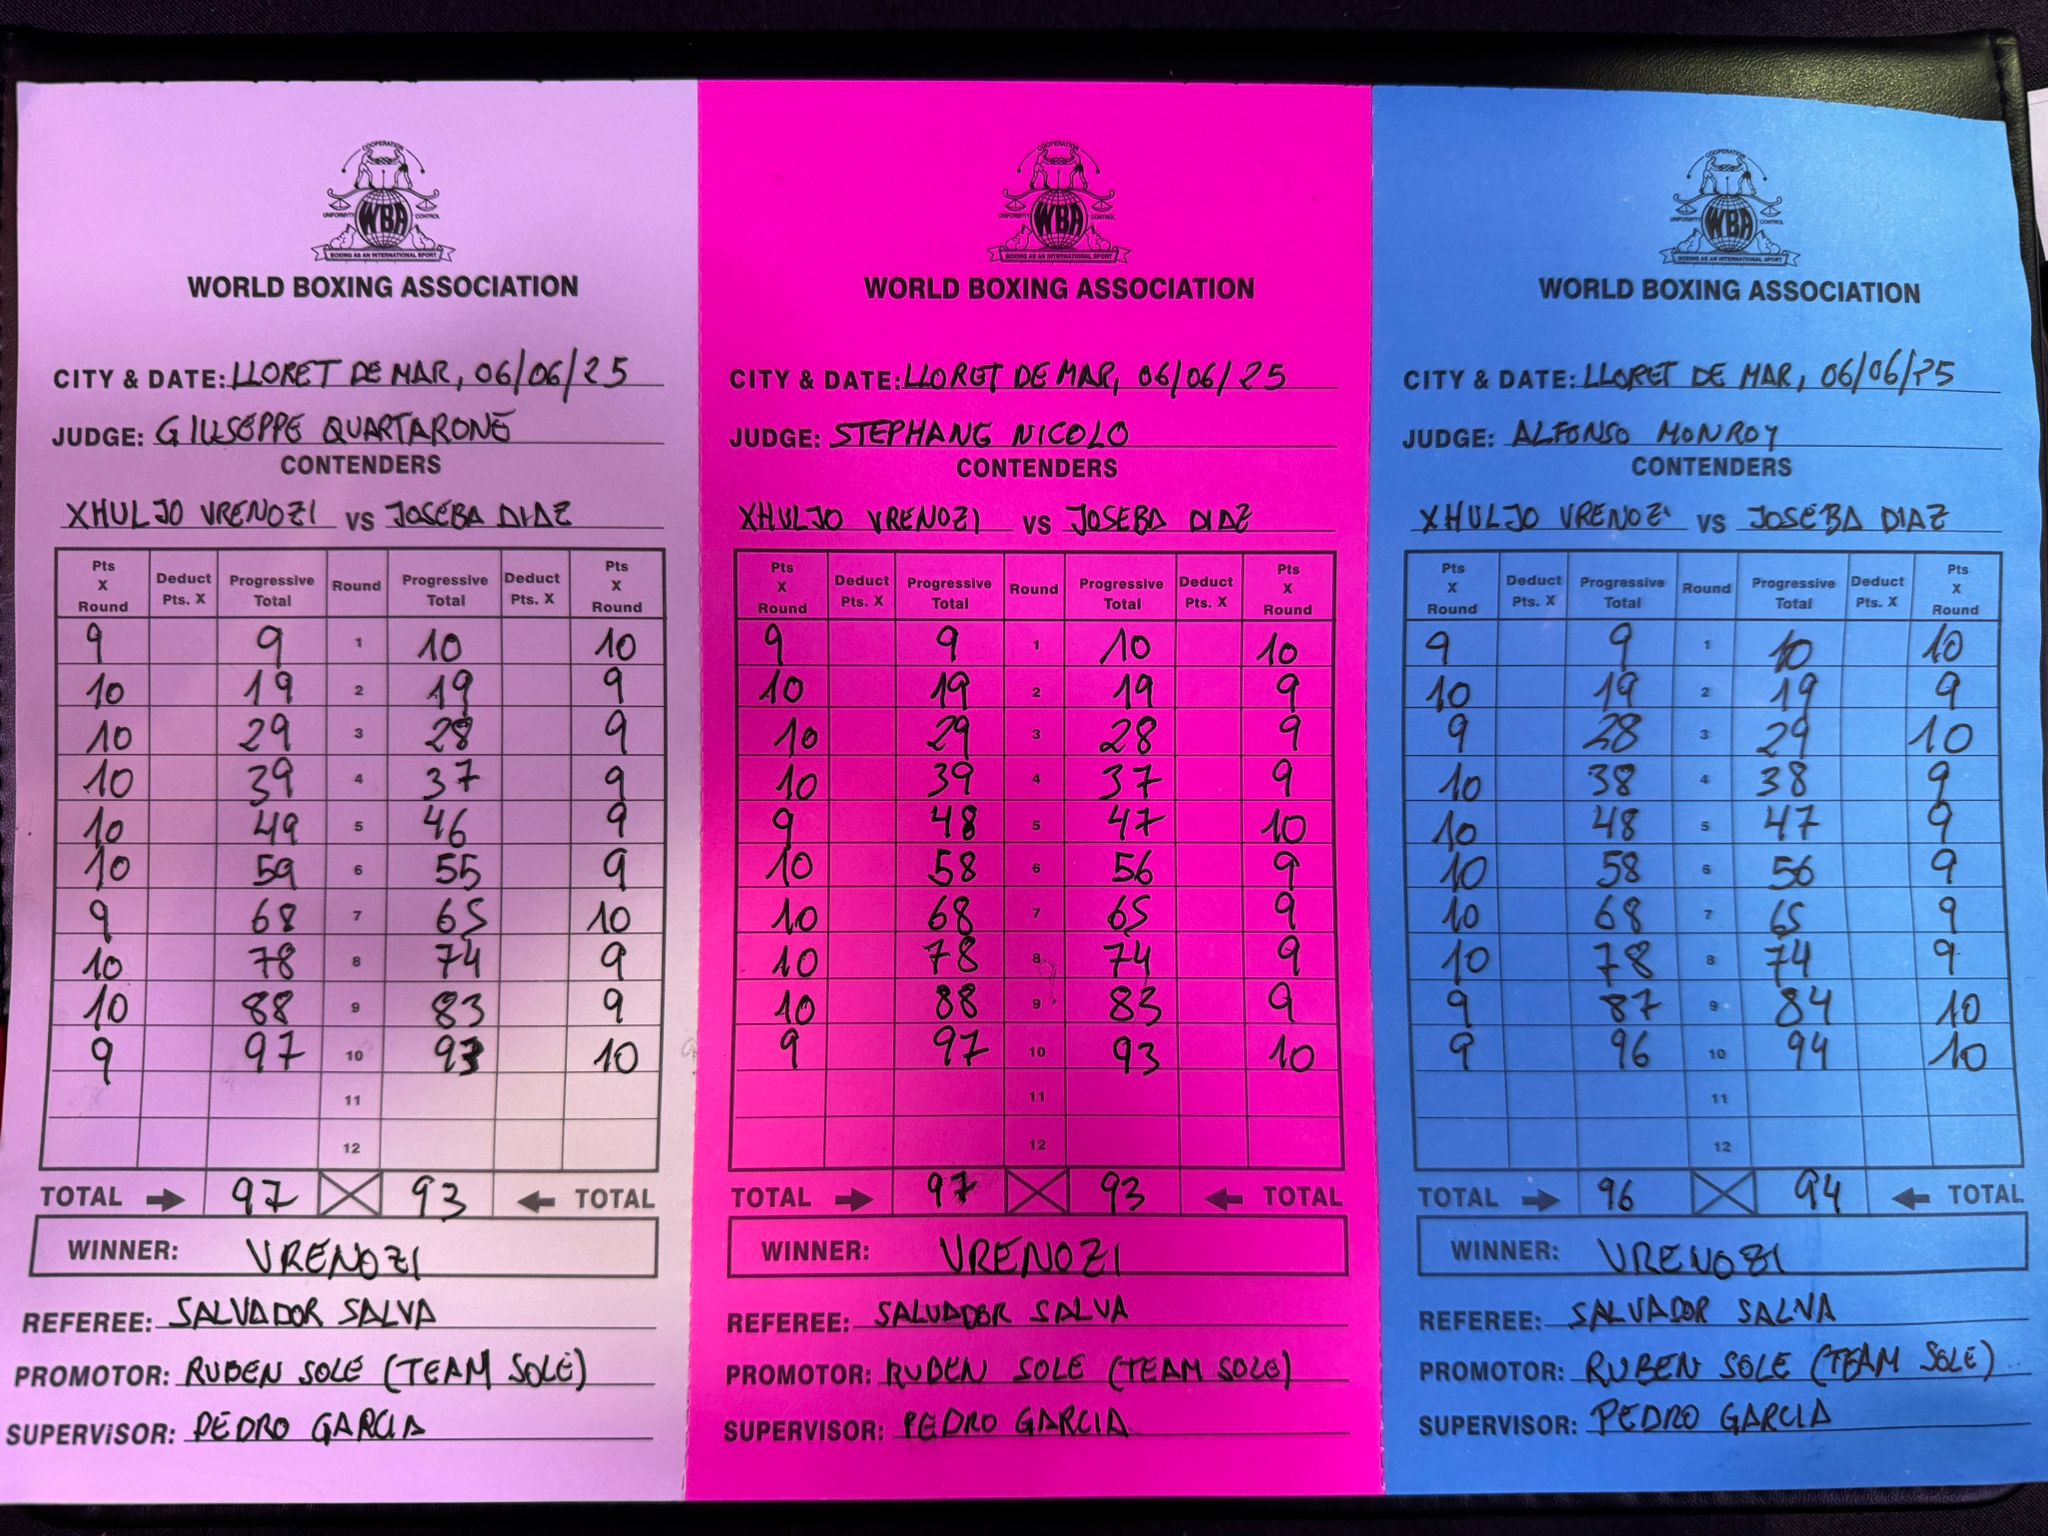 COOPERATION
UNIFORMITY WBA CONTROL
BOXING AS AN INTERNATIONAL SPORT
WORLD BOXING ASSOCIATION
CITY & DATE: LLORET DE MAR, 06/06/25
JUDGE: GIUSEPPE QUARTARONE
CONTENDERS
XHULJO VRENOZI VS JOSEBA DIAZ
Pts X Round Deduct Pts. X Progressive Total Round Progressive Total Deduct Pts. X Pts X Round
9 9 1 10 10
10 19 2 19 9
10 29 3 28 9
10 39 4 37 9
10 49 5 46 9
10 59 6 55 9
9 68 7 65 10
10 78 8 74 9
10 88 9 83 9
9 97 10 93 10
11
12
TOTAL 97 93 TOTAL
WINNER: VRENOZI
REFEREE: SALVADOR SALVA
PROMOTOR: RUBEN SOLE (TEAM SOLE)
SUPERVISOR: PEDRO GARCIA
COOPERATION
UNIFORMITY WBA CONTROL
BOXING AS AN INTERNATIONAL SPORT
WORLD BOXING ASSOCIATION
CITY & DATE: LLORET DE MAR, 06/06/25
JUDGE: STEPHANE NICOLO
CONTENDERS
XHULJO VRENOZI VS JOSEBA DIAZ
Pts X Round Deduct Pts. X Progressive Total Round Progressive Total Deduct Pts. X Pts X Round
9 9 1 10 10
10 19 2 19 9
10 29 3 28 9
10 39 4 37 9
9 48 5 47 10
10 58 6 56 9
10 68 7 65 9
10 78 8 74 9
10 88 9 83 9
9 97 10 93 10
11
12
TOTAL 97 93 TOTAL
WINNER: VRENOZI
REFEREE: SALVADOR SALVA
PROMOTOR: RUBEN SOLE (TEAM SOLE)
SUPERVISOR: PEDRO GARCIA
COOPERATION
UNIFORMITY WBA CONTROL
BOXING AS AN INTERNATIONAL SPORT
WORLD BOXING ASSOCIATION
CITY & DATE: LLORET DE MAR, 06/06/25
JUDGE: ALFONSO MONROY
CONTENDERS
XHULJO VRENOZI VS JOSEBA DIAZ
Pts X Round Deduct Pts. X Progressive Total Round Progressive Total Deduct Pts. X Pts X Round
9 9 1 10 10
10 19 2 19 9
9 28 3 29 10
10 38 4 38 9
10 48 5 47 9
10 58 6 56 9
10 68 7 65 9
10 78 8 74 9
9 87 9 84 10
9 96 10 94 10
11
12
TOTAL 96 94 TOTAL
WINNER: VRENOZI
REFEREE: SALVADOR SALVA
PROMOTOR: RUBEN SOLE (TEAM SOLE)
SUPERVISOR: PEDRO GARCIA